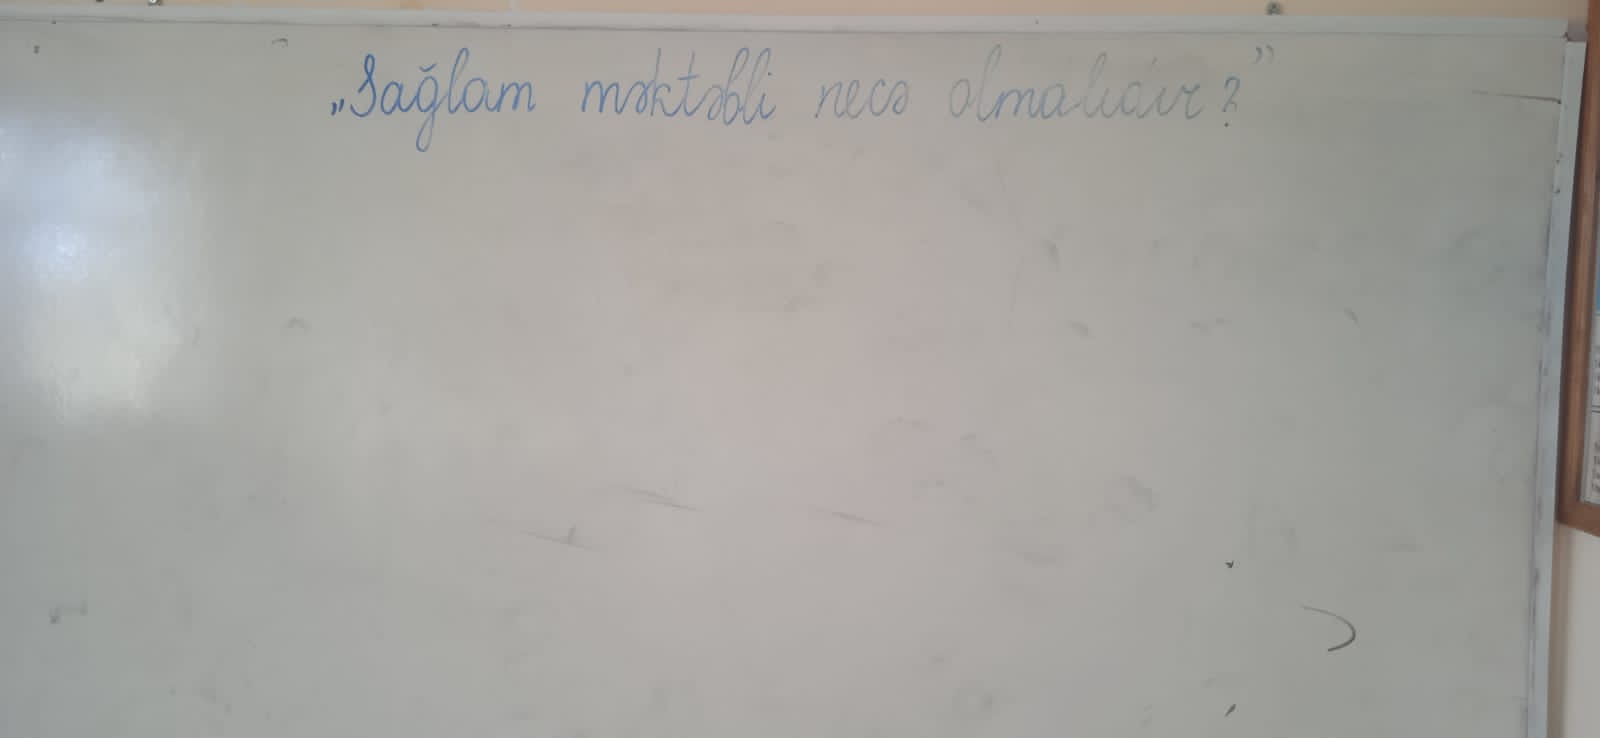 „Sağlam məktəbli necə olmalıdır?”